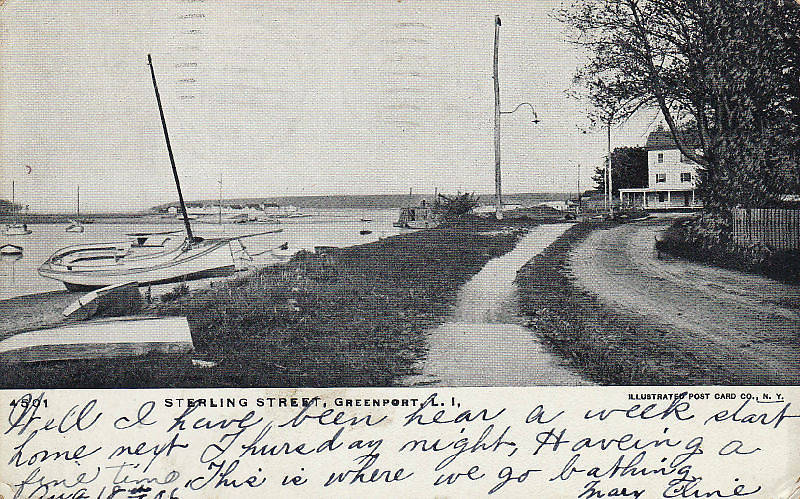 4501 STERLING STREET, GREENPORT, L. I., ILLUSTRATED POST CARD CO., N. Y.
Well I have been hear a week start
home next Thursday night, Haveing a
fine time. This is where we go bathing
Aug 18th 06 Mary